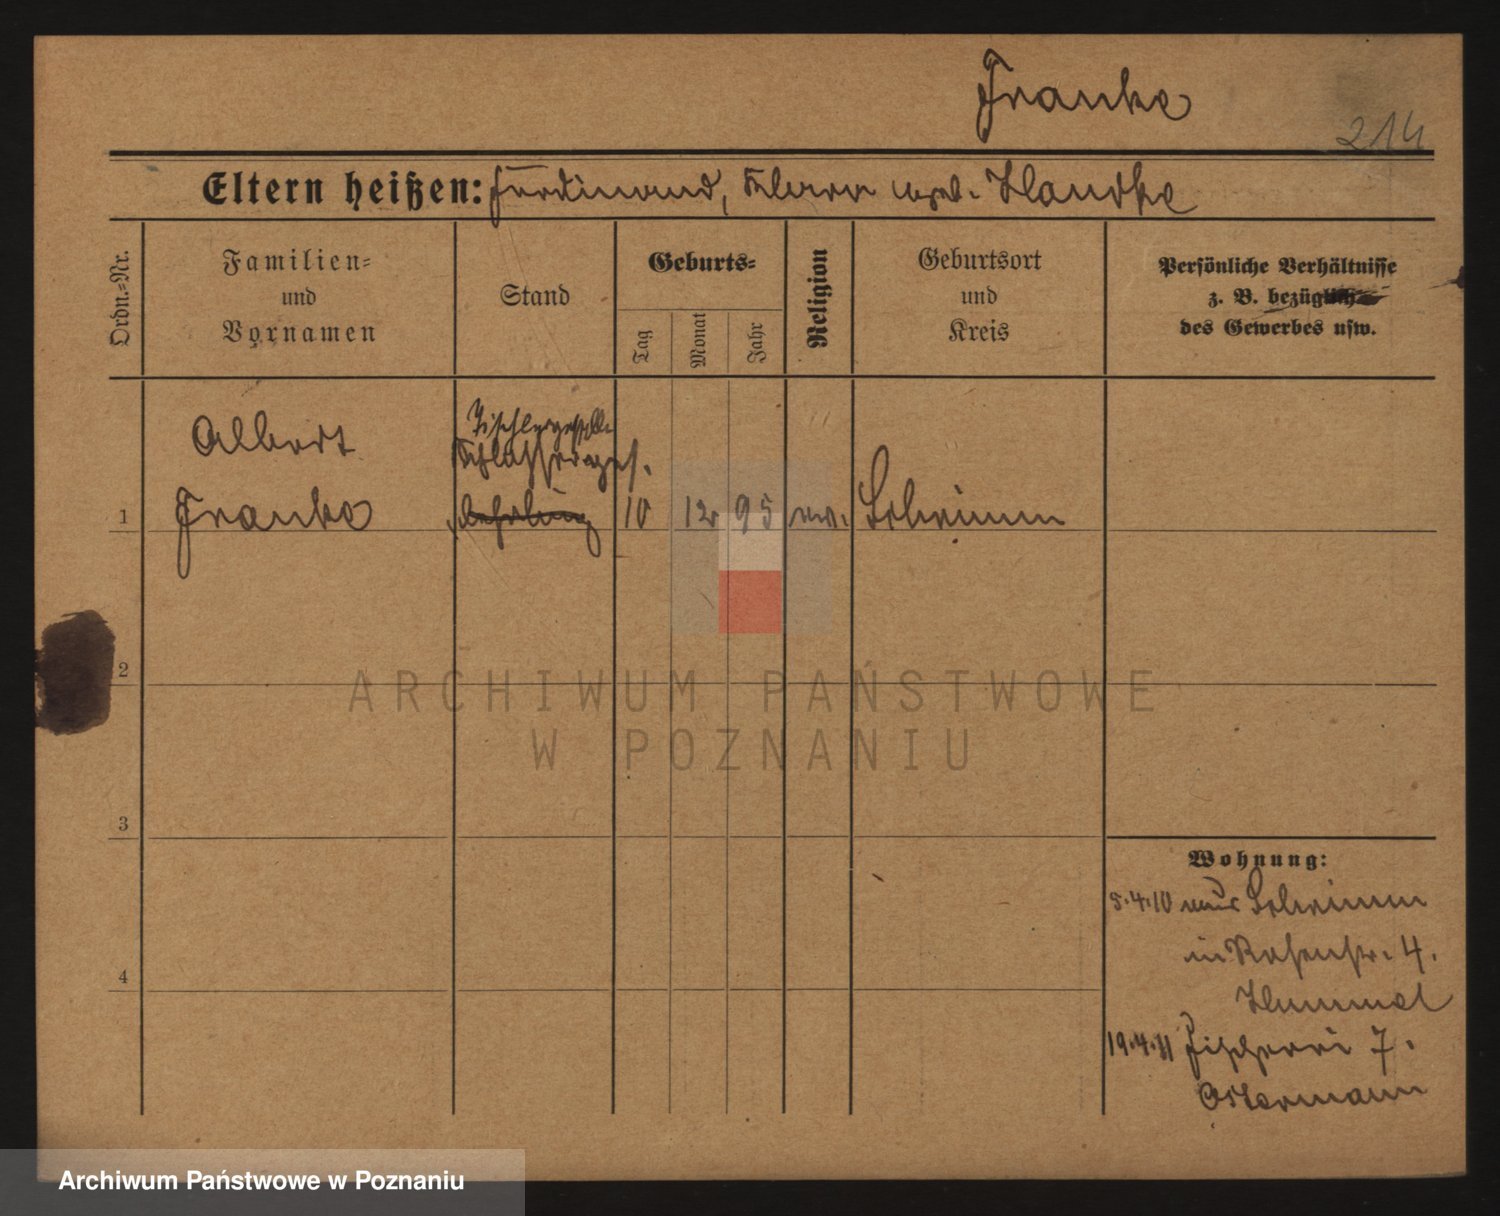 Franke
214
Eltern heißen: Ferdinand, Klara geb. Handke
Ordn.-Nr.
Familien-
und
Vornamen
Stand
Geburts-
Tag
Monat
Jahr
Religion
Geburtsort
und
Kreis
Persönliche Verhältnisse
z. B. bezüglich
des Gewerbes usw.
Albert
Tischlergeselle
Schlosserges.
1 Franke Lehrling 10 12 95 ev. Schrimm
2
3
4
Wohnung:
5.4.10 aus Schrimm
in Rosenstr. 4.
Hummel
19.4.11 Fischerei 7.
Ostermann
ARCHIWUM PAŃSTWOWE
W POZNANIU
Archiwum Państwowe w Poznaniu